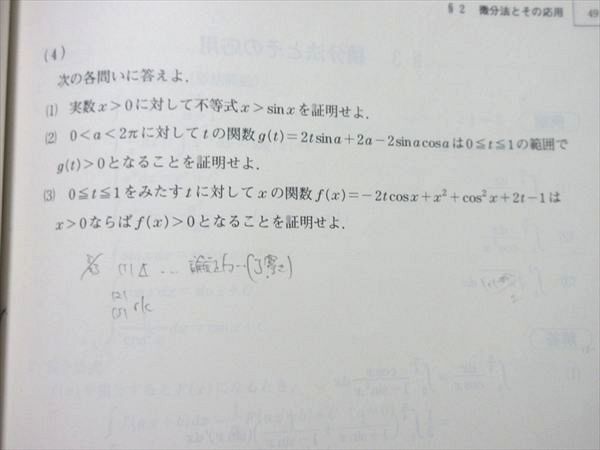 §2 微分法とその応用 49
(4)
次の各問いに答えよ.
(1) 実数x>0に対して不等式x>sinxを証明せよ.
(2) 0<a<2πに対してtの関数g(t)=2tsina+2a-2sinacosaは0≦t≦1の範囲で
g(t)>0となることを証明せよ.
(3) 0≦t≦1をみたすtに対してxの関数f(x)=-2tcosx+x²+cos²x+2t-1は
x>0ならばf(x)>0となることを証明せよ.
(1) Δ …
(2)
(3)